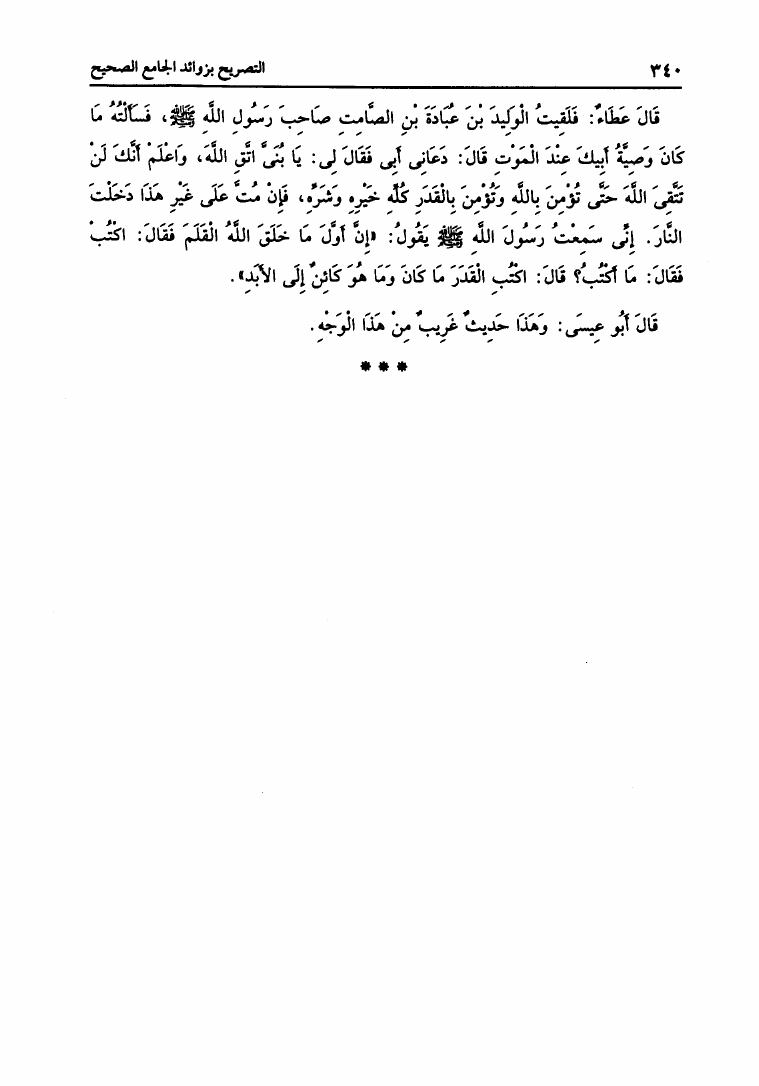 ٣٤٠ التصريح بزوائد الجامع الصحيح
قَالَ عَطَاءٌ: فَلَقِيتُ الْوَلِيدَ بْنَ عُبَادَةَ بْنِ الصَّامِتِ صَاحِبَ رَسُولِ اللَّهِ ﷺ، فَسَأَلْتُهُ مَا
كَانَ وَصِيَّةُ أَبِيكَ عِنْدَ الْمَوْتِ قَالَ: دَعَانِى أَبِى فَقَالَ لِى: يَا بُنَىَّ اتَّقِ اللَّهَ، وَاعْلَمْ أَنَّكَ لَنْ
تَتَّقِىَ اللَّهَ حَتَّى تُؤْمِنَ بِاللَّهِ وَتُؤْمِنَ بِالْقَدَرِ كُلِّهِ خَيْرِهِ وَشَرِّهِ، فَإِنْ مُتَّ عَلَى غَيْرِ هَذَا دَخَلْتَ
النَّارَ. إِنِّى سَمِعْتُ رَسُولَ اللَّهِ ﷺ يَقُولُ: «إِنَّ أَوَّلَ مَا خَلَقَ اللَّهُ الْقَلَمَ فَقَالَ: اكْتُبْ
فَقَالَ: مَا أَكْتُبُ؟ قَالَ: اكْتُبِ الْقَدَرَ مَا كَانَ وَمَا هُوَ كَائِنٌ إِلَى الأَبَدِ».
قَالَ أَبُو عِيسَى: وَهَذَا حَدِيثٌ غَرِيبٌ مِنْ هَذَا الْوَجْهِ.
* * *